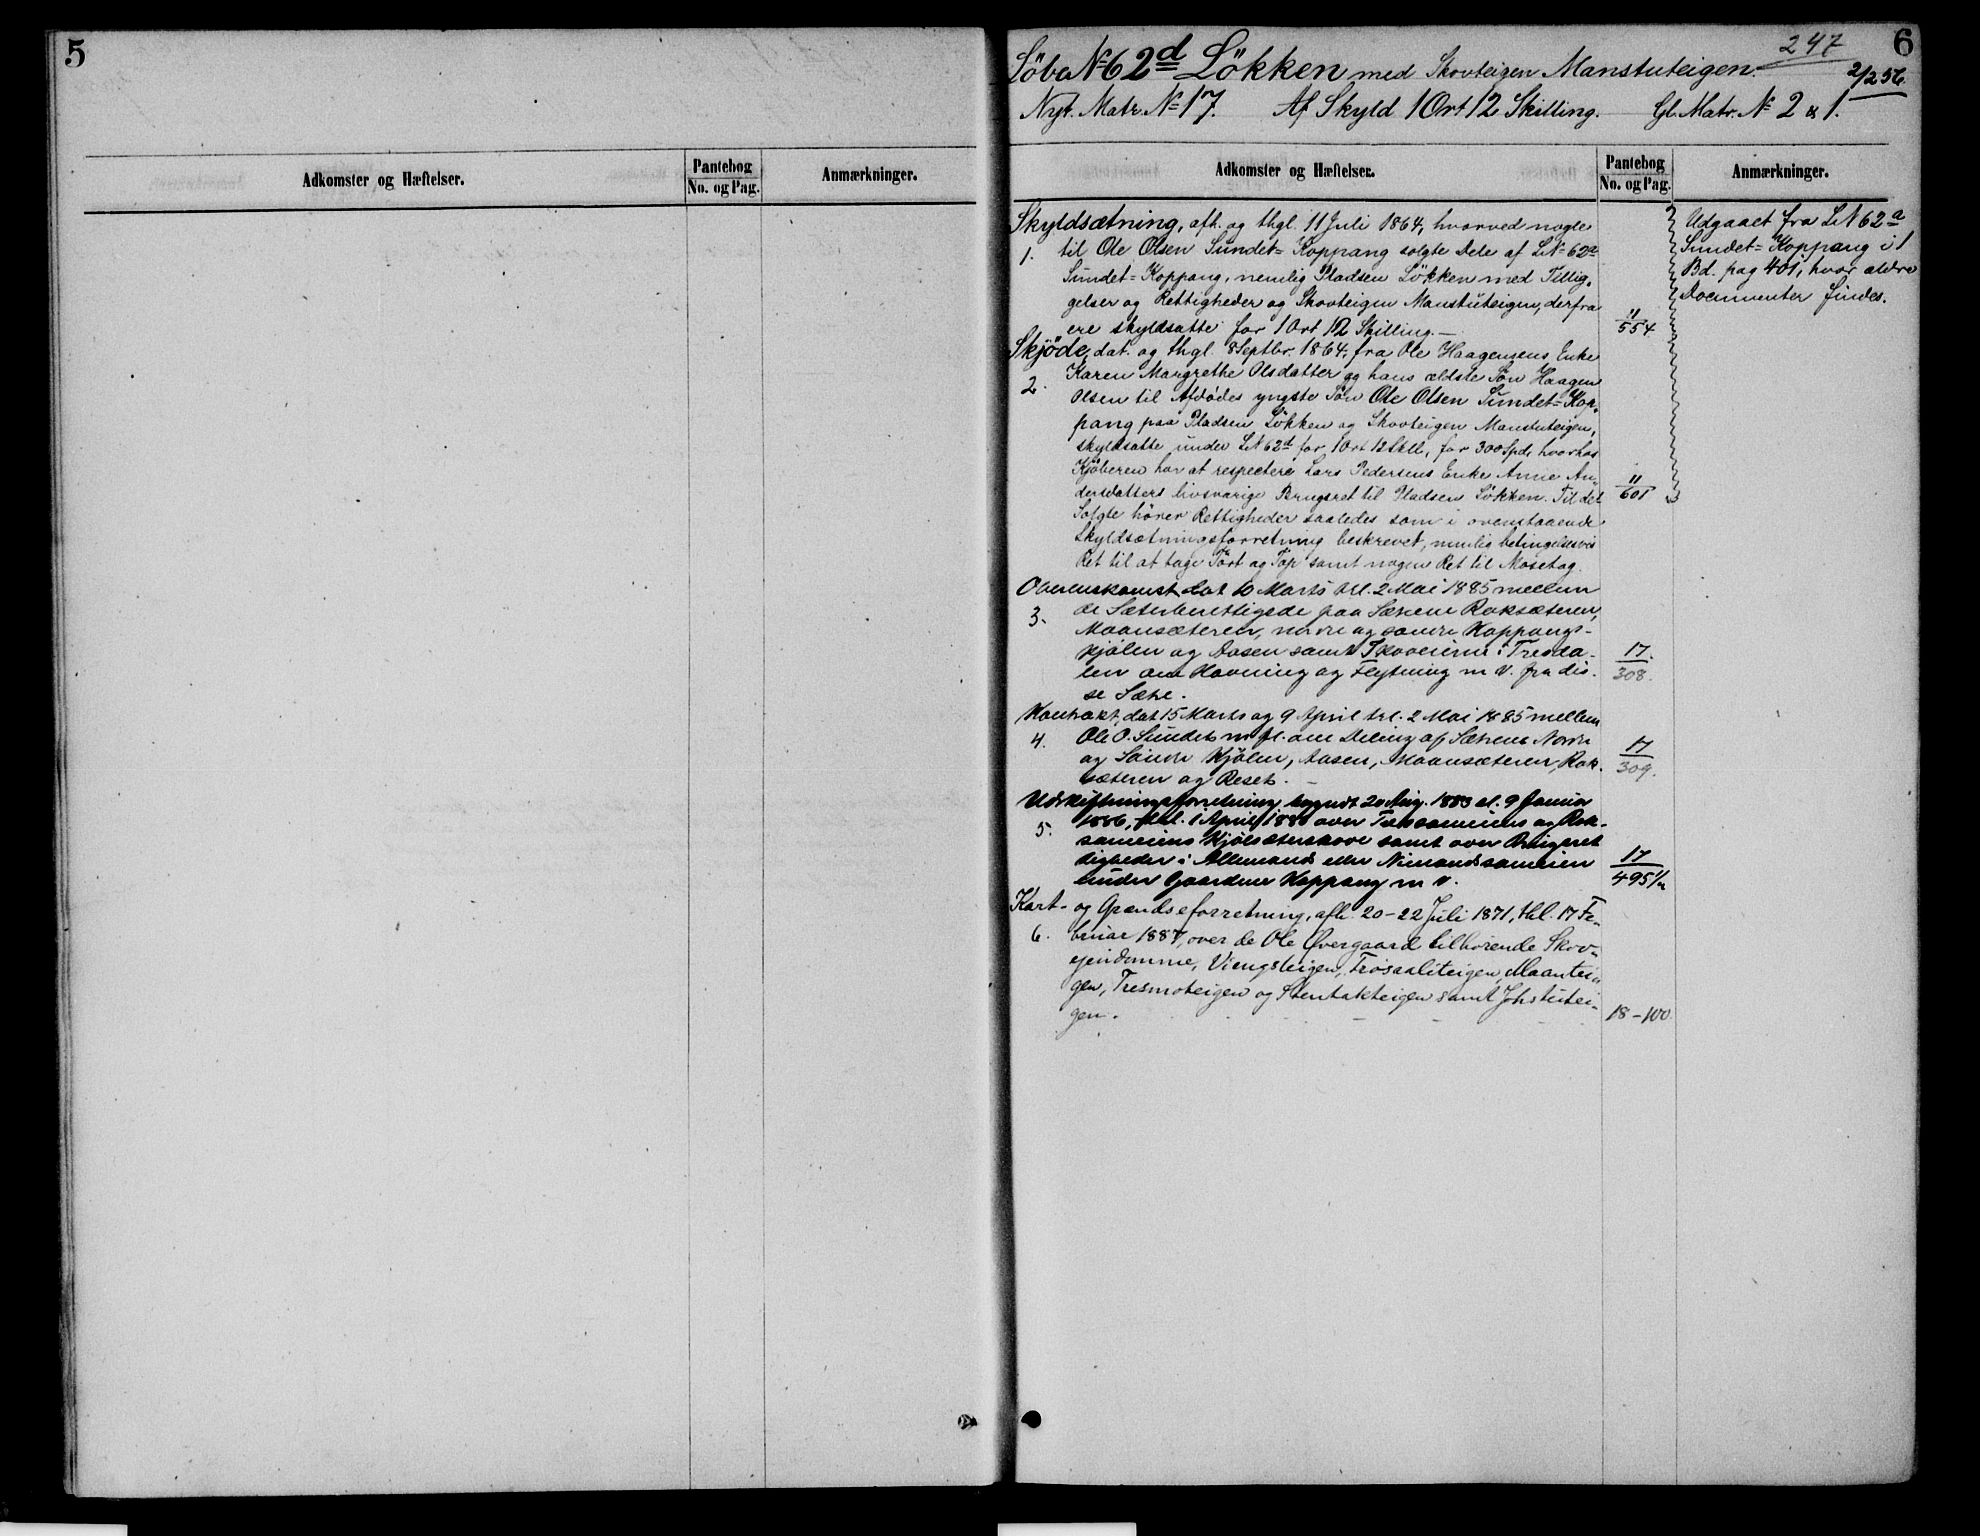 5
Adkomster og Hæftelser.
Pantebog
No. og Pag.
Anmærkninger.
247
6
Löbe № 62d Lökken med Skovteigen Manstuteigen.
2/256
Nyt. Matr. № 17. Af Skyld 1 Ort 12 Skilling. Gl. Matr. № 2 & 1.
Adkomster og Hæftelser.
Pantebog
No. og Pag.
Anmærkninger.
Skyldsætning, afh. og thgl. 11 Juli 1864, hvorved nogle
1. til Ole Olsen Sundet=Koppang solgte Dele af L№ 62a
Sundet=Koppang, nemlig Pladsen Lökken med Tillig-
gelser og Rettigheder og Skovteigen Manstuteigen, derfra
ere skyldsatte for 1 Ort 12 Skilling.—
11
554
Udgaaet fra L№ 62a
Sundet=Koppang i 1
Bd. pag 401, hvor ældre
Documenter findes.
Skjöde, dat. og thgl. 8 Septbr. 1864, fra Ole Haagensens Enke
2. Karen Margrethe Olsdatter og hans ældste Sön Haagen
Olsen til Afdödes yngste Sön Ole Olsen Sundet=Kop-
pang paa Pladsen Lökken og Skovteigen Manstuteigen,
skyldsatte under L№ 62d for 1 Ort 12 Skll, for 300 Spd, hvorhos
Kjöberen har at respectere Lars Pedersens Enke Anne An-
dersdatters livsvarige Brugsret til Pladsen Lökken. Til det
11
601
Solgte hörer Rettigheder saaledes som i ovenstaaende
Skyldsætningsforretning beskrevet, nemlig betingelsesvis
Ret til at tage Tört og Töp samt nogen Ret til Mosetag.
Overenskomst dat 10 Marts thl. 2 Mai 1885 mellem
3. de Sæterberettigede paa Sætrene Roksæteren,
Moansæteren, nordre og søndre Koppangs-
kjølen og Aasen samt Skoveierne i Tresda-
len om Havning og Flytning m. v. fra dis-
se Sætre.
17.
308.
Kontrakt, dat 15 Marts og 9 April thl. 2 Mai 1885 mellem
4. Ole O. Sundet m. fl. om Deling af Sætrene Nordre
og Søndre Kjølen, Aasen, Moansæteren, Rok-
sæteren og Reset.
17
309.
Udskiftningsforretning begyndt 20 Aug. 1883 sl. 9 Januar
5. 1886, thl. 1 April 1886 over og Rok-
sameiens Kjølsæterskove samt over Brugsret
tigheder i Allemands eller Nimandssameien
under Gaardene Koppang m. v.
17
495 1/2
Kart- og Grændseforretning, afh. 20-22 Juli 1871, thl. 17 Fe-
6. bruar 1887, over de Ole Øvergaard tilhørende Skov-
ejendomme, Viengsteigen, Trøsaaliteigen, Maantei-
gen, Tresmoteigen og Stentakteigen samt Johstutei-
gen.
18-100.